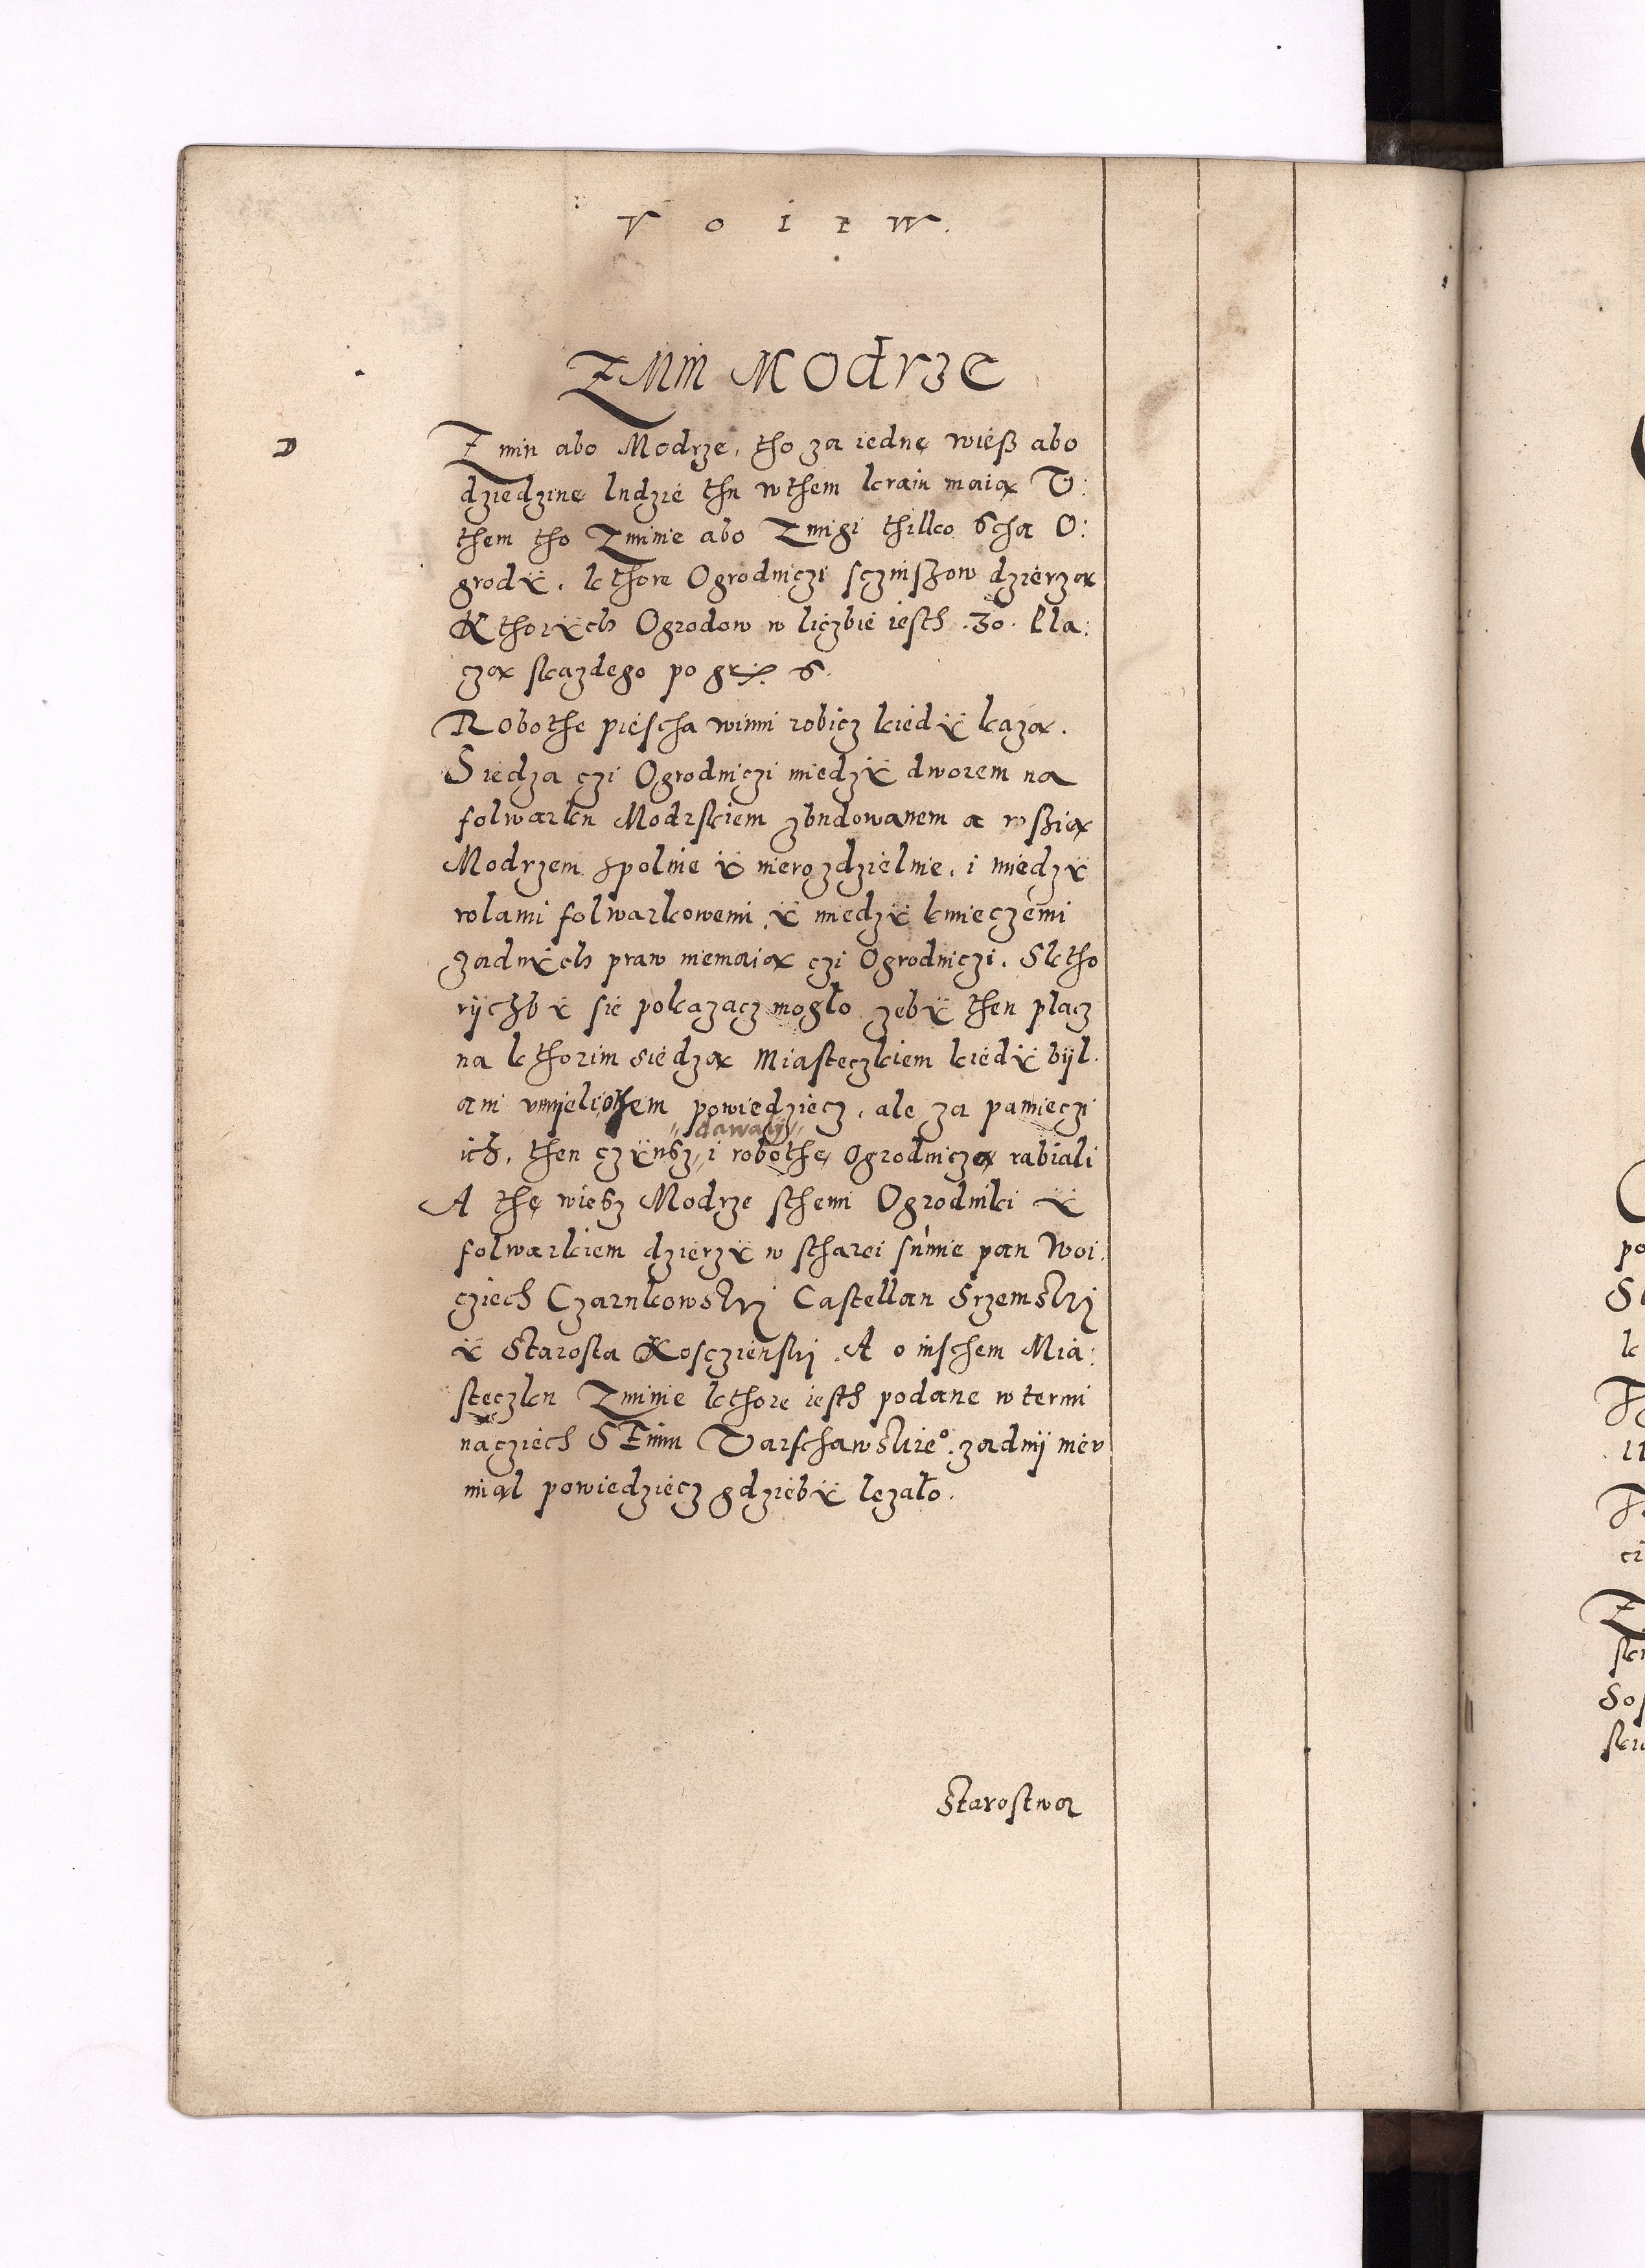 V o i e w.
Zmin Modrze
D
Zmin abo Modrze, tho za iednę wieß abo
dziedzinę ludzie thu wthem kraiu maią W:
them tho Zminie abo Zmigi thilko scha O:
grodÿ, kthore Ogrodniczi sczinszow dzierzą
KthorÿchOgrodow w liczbie iesth .30. Pla:
czą skazdego po gr. 6.
Robothe piescha winni robicz kiedÿ każą.
Siedza czi Ogrodniczi miedzÿ dworem na
folwarku Modrskiem zbudowanem a wßią
Modrzem spolnie ÿ nierozdzielnie, i miedzÿ
rolami folwarkowemi ÿ miedzÿ kmieczemi
zadnÿch praw niemaią czi Ogrodniczi. Sktho
rÿchbÿ sie pokazacz mogło zebÿ then placz
na kthorim siedzą Miasteczkiem kiedÿ bÿl.
ani vmieli othem powiedziecz, ale za pamieczi
dawalÿ
ich, then czÿnsz i robothę Ogrodniczą rabiali
A thę wiesz Modrze sthemi Ogrodniki ÿ
folwarkiem dzierzÿ w stharei sumie pan Woi:
cziech Czarnkowski Castellan Srzemski
ÿ Starosta Kosczienski. A o inschem Mia:
steczku Zminie kthore iesth podane w termi
nacziech SEimu Warschawskieº. zadnÿ niev
miąl powiedziecz gdziebÿ lezało.
Starostwa